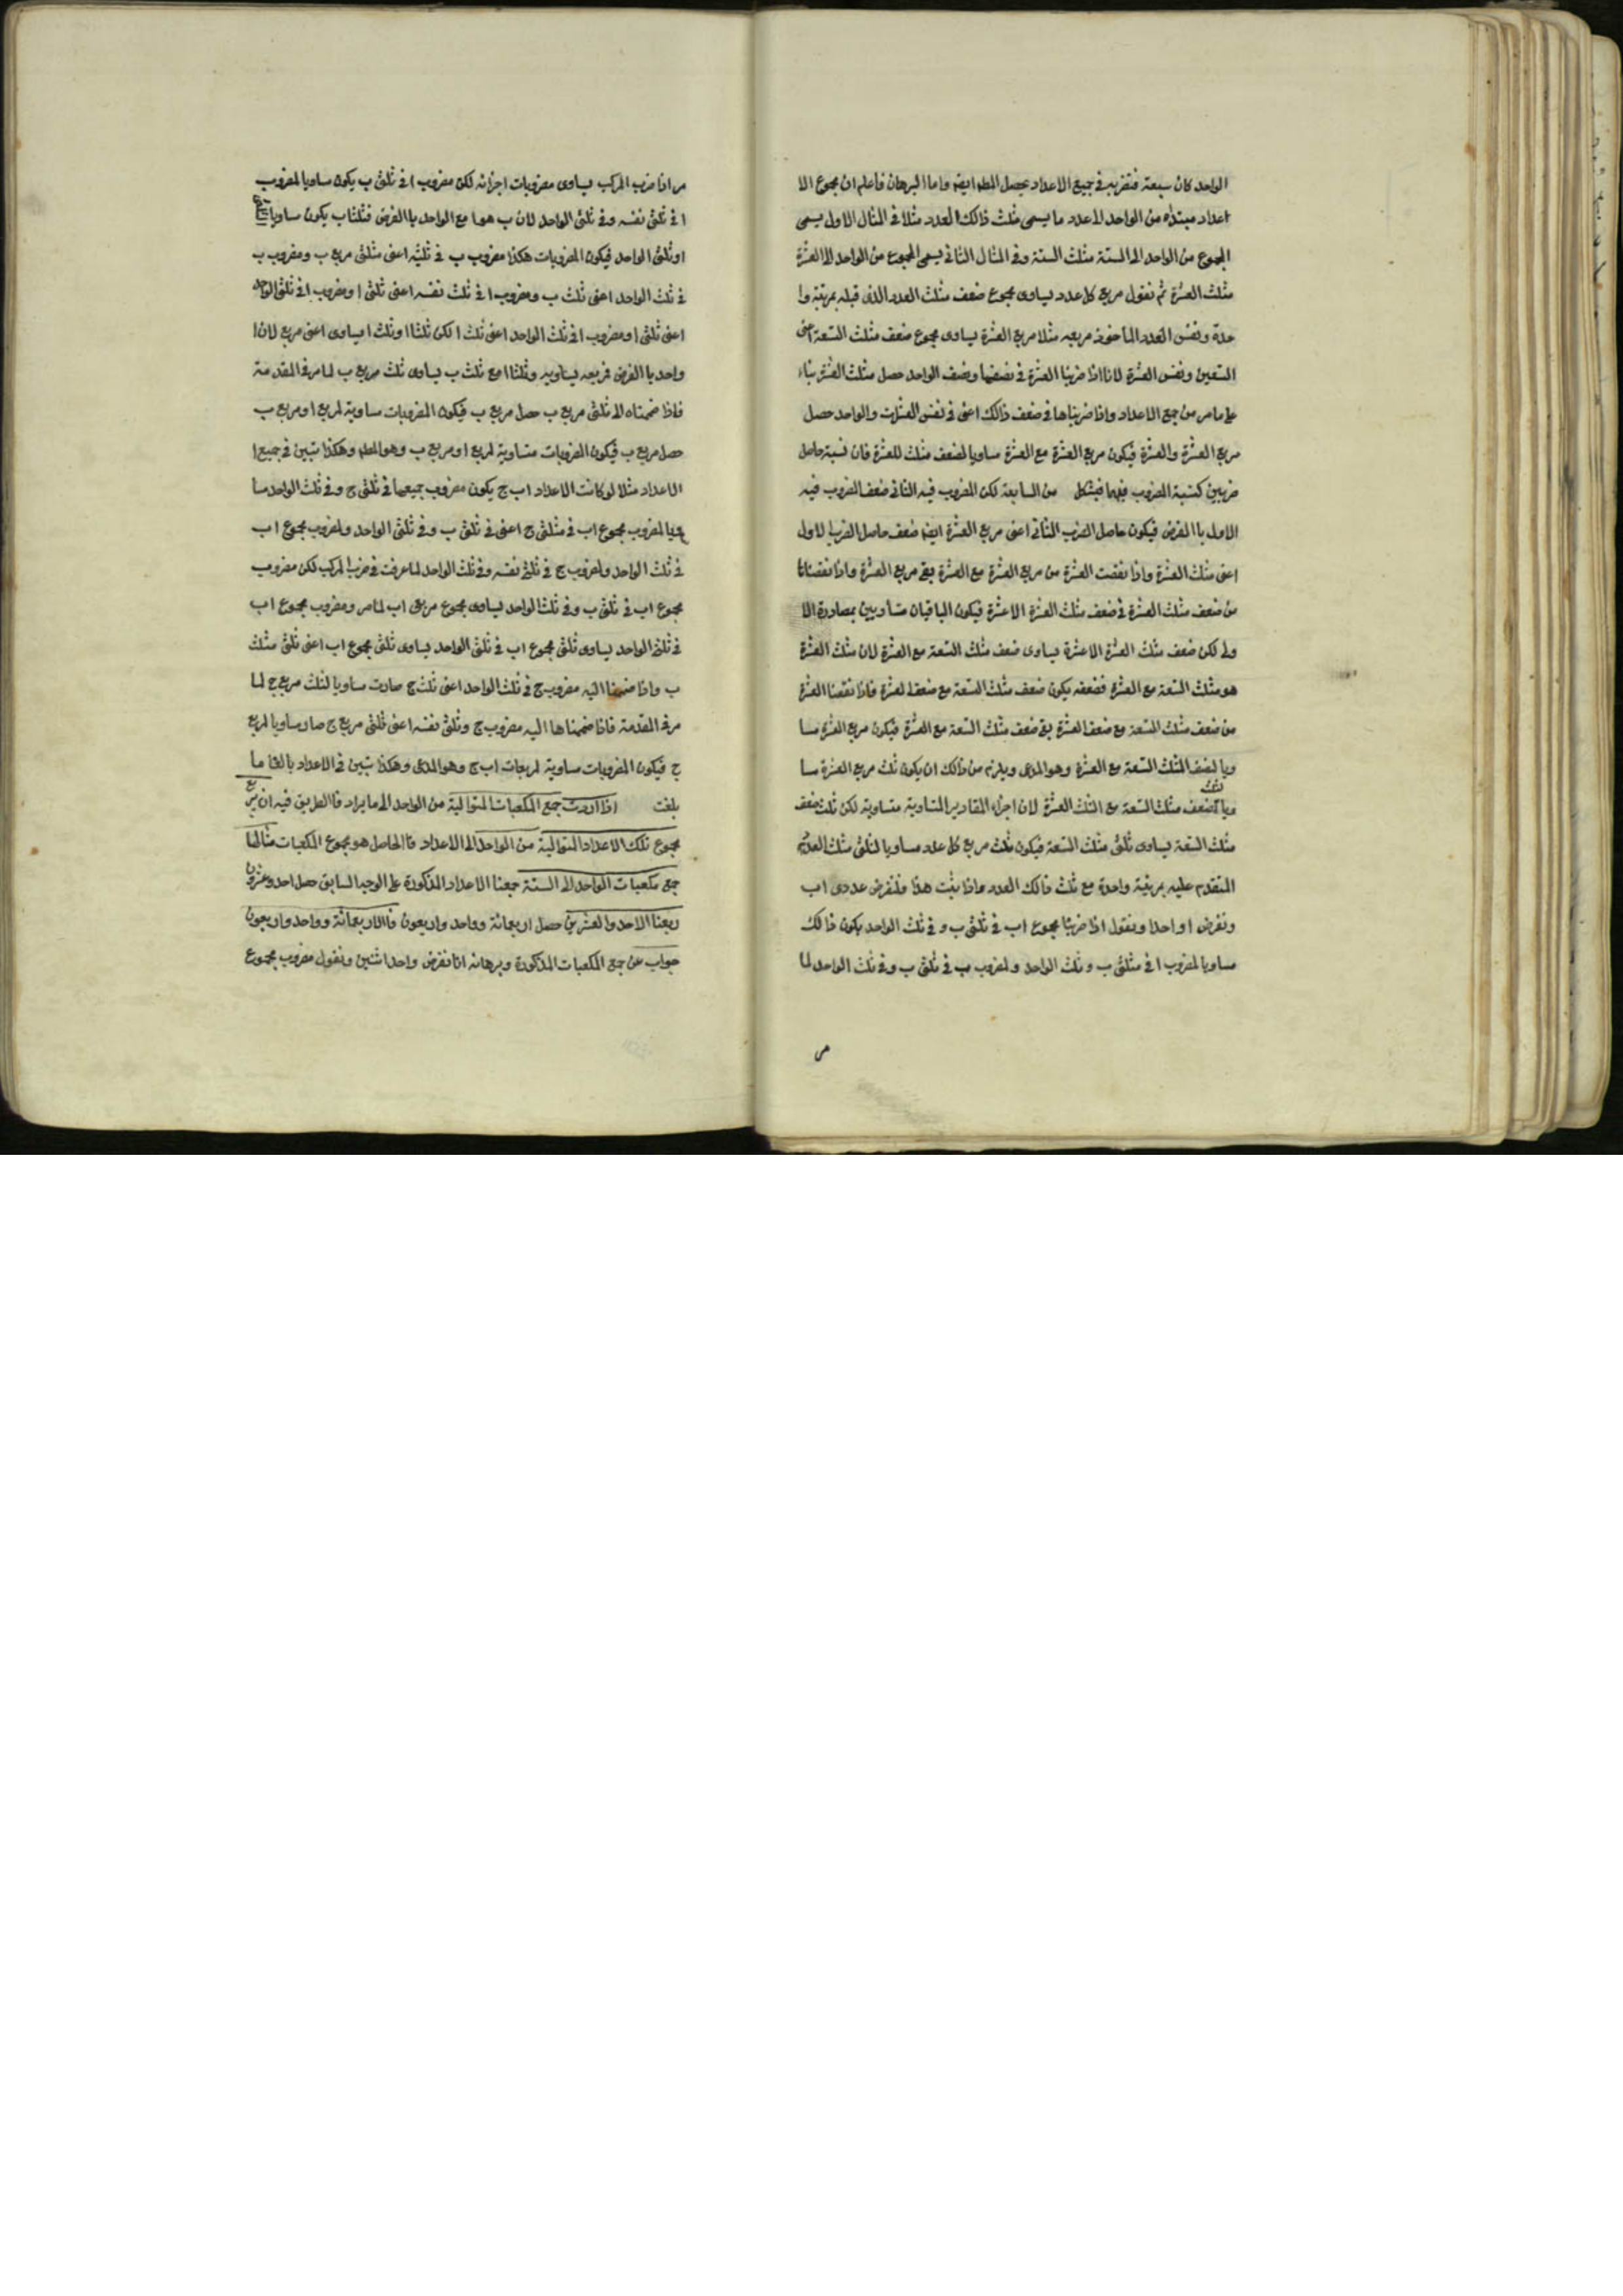 الواحد كان سبعة فنضربه في جميع الاعداد يحصل المط ايضا واما البرهان فاعلم ان مجموع الا
اعداد مبتداه من الواحد الى عدد ما يسمى مثلث ذالك العدد مثلا في المثال الاول يسمى
المجموع من الواحد الى الستة مثلث الستة وفي المثال الثاني يسمى المجموع من الواحد الى العشرة
مثلث العشرة ثم نقول مربع كل عدد يساوى مجموع ضعف مثلث العدد الذى قبله بمرتبة وا
حدة ونفس العدد المأخوذ مربعه مثلا مربع العشرة يساوى مجموع ضعف مثلث التسعة اعنى
التسعين ونفس العشرة لانا اذا ضربنا العشرة في نصفها ونصف الواحد حصل مثلث العشرة بناء
على ما مر من جمع الاعداد واذا ضربناها في ضعف ذالك اعنى في نفس العشرة والواحد حصل
مربع العشرة والعشرة فيكون مربع العشرة مع العشرة مساويا لضعف مثلث للعشرة فان نسبة حاصل
ضربين كنسبة المضروب فيهما فبشكل من السابعة لكن المضروب فيه الثاني ضعف المضروب فيه
الاول با الفرض فيكون حاصل الضرب الثاني اعنى مربع العشرة ايضا ضعف حاصل الضرب الاول
اعنى مثلث العشرة واذا نقصت العشرة من مربع العشرة مع العشرة بقي مربع العشرة واذا نقصناها
من ضعف مثلث العشرة في ضعف مثلث العشرة الا عشرة فيكون الباقيان متساويين بمصادرة الا
ولى لكن ضعف مثلث العشرة الا عشرة يساوى ضعف مثلث التسعة مع العشرة لان مثلث العشرة
هو مثلث التسعة مع العشرة فضعفه يكون ضعف مثلث التسعة مع ضعف العشرة فاذا نقصنا العشرة
من ضعف مثلث التسعة مع ضعف العشرة بقي ضعف مثلث التسعة مع العشرة فيكون مربع العشرة مسا
ويا لضعف المثلث التسعة مع العشرة وهو المدعى ويلزم من ذالك ان يكون ثلث مربع العشرة مسا
ويا لثلث ضعف مثلث التسعة مع الثلث العشرة لان اجزاء المقادير المتساوية متساوية لكن ثلث ضعف
مثلث التسعة يساوى ثلثى مثلث التسعة فيكون ثلث مربع كل عدد مساويا لثلثى مثلث العدد
المتقدم عليه بمرتبة واحدة مع ثلث ذالك العدد واذا ثبت هذا فلنفرض عددى ا ب
ونفرض ا واحدا ونقول اذا ضربنا مجموع ا ب في ثلثى ب و في ثلث الواحد يكون ذالك
مساويا لمضروب ا في مثلثى ب و ثلث الواحد و لمضروب ب في ثلثى ب وفي ثلث الواحد لما
مر
مر اذا ضرب المركب يساوى مضروبات اجزائه لكن مضروب ا في ثلثى ب يكون مساويا لمضروب
ا في ثلثى نفسه وفي ثلثى الواحد لان ب هو ا مع الواحد با الفرض فثلثا ب يكون مساويا
ا وثلثى الواحد فيكون المضروبات هكذا مضروب ب في ثلثيه اعنى مثلثى مربع ب ومضروب ب
في ثلث الواحد اعنى ثلث ب ومضروب ا في ثلث نفسه اعنى ثلثى ا ومضروب ا في ثلثى الواحد
اعنى ثلثى ا ومضروب ا في ثلث الواحد اعنى ثلث ا لكن ثلثا ا وثلث ا يساوى اعنى مربع لان ا
واحد با الفرض فمربعه يساويه وثلثا ا مع ثلث ب يساوى ثلث مربع ب لما مر في المقدمة
فاذا ضممناه الى ثلثى مربع ب حصل مربع ب فيكون المضروبات مساوية لمربع ا ومربع ب
حصل مربع ب فيكون المضروبات متساوية لمربع ا ومربع ب وهو المط وهكذا تبين في جميع ا
الاعداد مثلا لو كانت الاعداد ا ب ج يكون مضروب جميعها في ثلثى ج وفي ثلث الواحد مسا
ويا لمضروب مجموع ا ب في مثلثى ج اعنى في ثلثى ب وفي ثلثى الواحد ولمضروب مجموع ا ب
في ثلث الواحد ولمضروب ج في ثلثى نفسه وفي ثلث الواحد لما عرفت في ضرب المركب لكن مضروب
مجموع ا ب في ثلثى ب وفي ثلث الواحد يساوى مجموع مربعى ا ب لما مر ومضروب مجموع ا ب
في ثلثى الواحد يساوى ثلثى مجموع ا ب في ثلثى الواحد يساوى ثلثى مجموع ا ب اعنى ثلثى مثلث
ب واذا ضممنا اليه مضروب ج في ثلث الواحد اعنى ثلث ج صارت مساويا لثلث مربع ج لما
مر في المقدمة فاذا ضممناها اليه مضروب ج وثلثى نفسه اعنى ثلثى مربع ج صار مساويا لمربع
ج فيكون المضروبات مساوية لمربعات ا ب ج وهو المدعى وهكذا تبين في الاعداد بالغا ما
بلغت اذا اردت جمع المكعبات المتوالية من الواحد الى ما يراد فا الطريق فيه ان يربع
مجموع تلك الاعداد المتوالية من الواحد الى الاعداد فا الحاصل هو مجموع المكعبات مثالها
جمع مكعبات الواحد الى الستة جمعنا الاعداد المذكورة على الوجه السابق حصل احد وعشرون
ربعنا الاحد والعشرين حصل اربعمائة وواحد واربعون فا الاربعمائة وواحد واربعون
جواب عن جمع المكعبات المذكورة وبرهانه انا نفرض واحدا اثنين ونقول مضروب مجموع